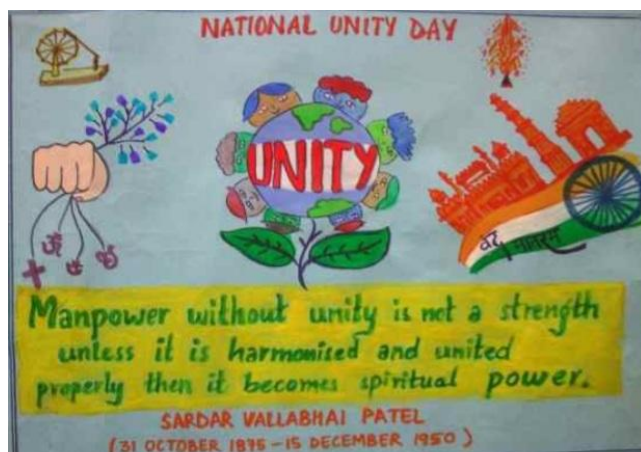 NATIONAL UNITY DAY
UNITY
वन्दे मातरम
Manpower without unity is not a strength
unless it is harmonised and united
properly then it becomes spiritual power.
SARDAR VALLABHAI PATEL
(31 OCTOBER 1875-15 DECEMBER 1950)